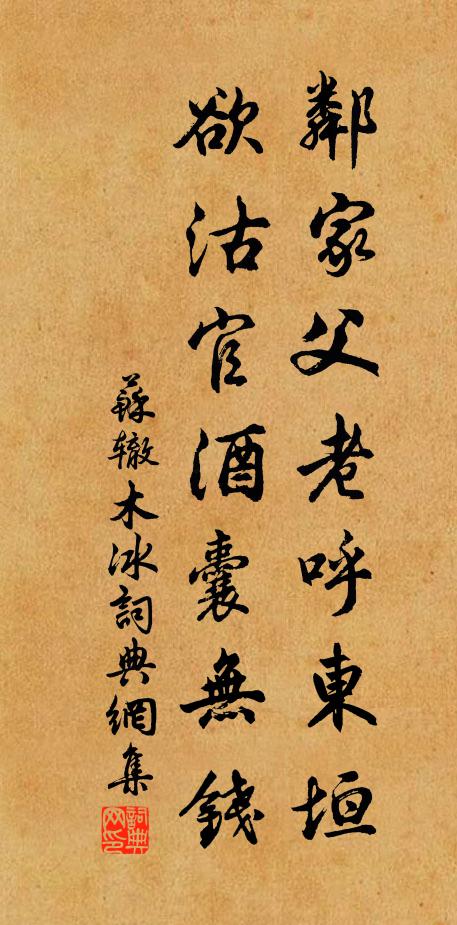 鄰家父老呼東垣
欲沽官酒囊無錢
蘇辙木冰詞典網集
詞典網印